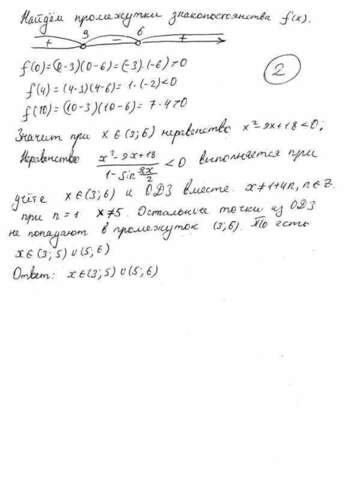 Найдём промежутки знакопостоянства f(x).
3 6
+ − +
f(0)=(0-3)(0-6)=(-3)·(-6)>0
2
f(4)=(4-3)(4-6)=1·(-2)<0
f(10)=(10-3)(10-6)=7·4>0
Значит при x∈(3;6) неравенство x²-9x+18<0;
Неравенство (x²-9x+18)/(1-sin πx/2) <0 выполняется при
учёте x∈(3;6) и ОДЗ вместе x≠1+4n, n∈Z.
при n=1 x≠5. Остальные точки из ОДЗ
не попадают в промежуток (3;6). То есть
x∈(3;5)∪(5;6)
Ответ: x∈(3;5)∪(5;6)